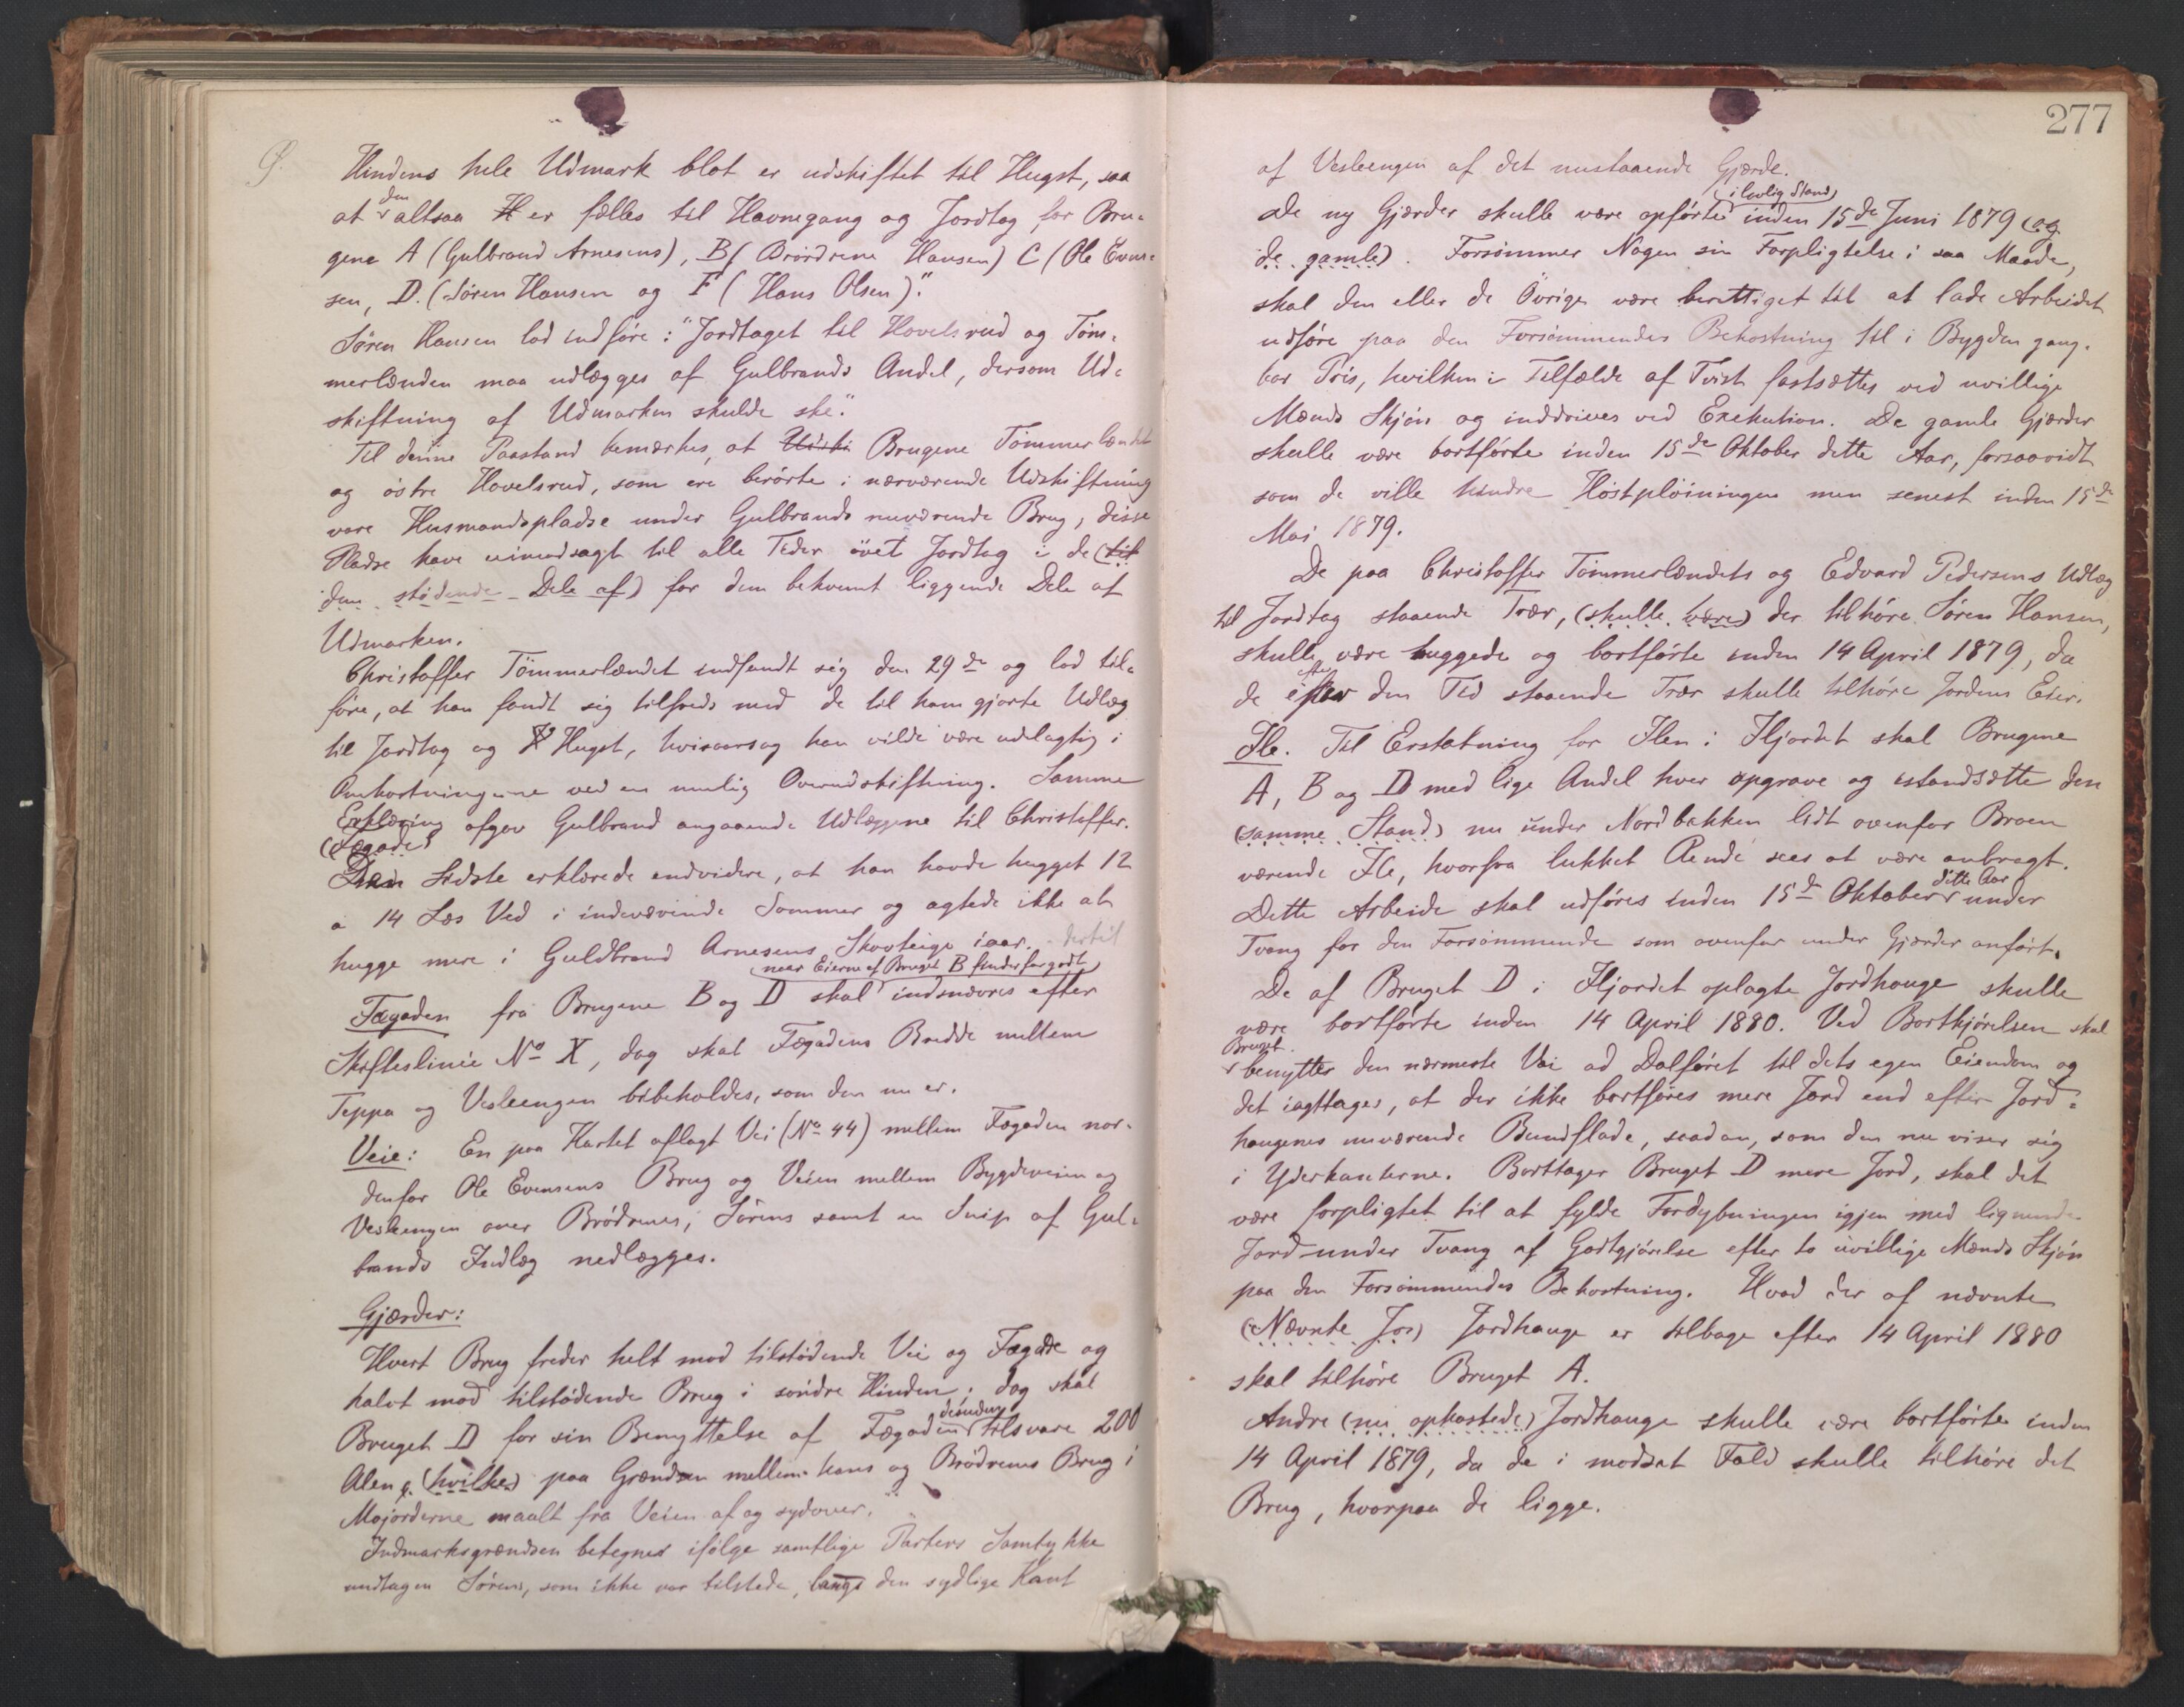 Hindens hele Udmark blot er udskiftet til Hugst, saa
at den altsaa H er fælles til Havnegang og Jordtag for Bru-
gene A (Gulbrand Arnesens), B (Brödrene Hansen) C (Ole Even-
sen, D. (Sören Hansen og F (Hans Olsen)."
Sören Hansen lod indföre: "Jordtaget til Hovelsrud og Töm-
merlænden maa udlægges af Gulbrands Andel, dersom Ud-
skiftning af Udmarken skulde ske."
Til denne Paastand bemærkes, at Udski Brugene Tömmerlændet
og östre Hovelsrud, som ere berörte i nærværende Udskiftning
vare Husmandspladse under Gulbrands nuværende Brug, disse
Pladse have uimodsagt til alle Tider övet Jordtag i de (til
dem stödende Dele af) for dem bekvemt liggende Dele af
Udmarken.
Christoffer Tömmerlændet indfandt sig den 29de og lod til-
före, at han fandt sig tilfreds med de til ham gjorte Udlæg
til Jordtag og Hugst, hvisaarsag han vilde være udelagtig i
Omkostningerne ved en mulig Overudskiftning. Samme
Erklæring afgav Gulbrand angaaende Udlæggene til Christoffer.
(Fægade)
Den Sidste erklærede endvidere, at han havde hugget 12
a 14 Læs Ved i indeværende Sommer og agtede ikke at
hugge mere i Guldbrand Arnesens Skovteige iaar. dertil
naar Eierne af Bruget B finder for godt
Fægaden fra Brugene B og D skal indsnævres efter
Skifteslinie No X, dog skal Fægadens Bredde mellem
Teppa og Vesleengen bibeholdes, som den nu er.
Veie: En paa Kartet aflagt Vei (No 44) mellem Fægaden nor-
denfor Ole Evensens Brug og Veien mellem Bygdeveien og
Vesleengen over Brödrenes, Sörens samt en Snip af Gul-
brands Indlæg nedlægges.
Gjærder:
Hvert Brug freder helt mod tilstödende Vei og Fægade og
halvt mod tilstödende Brug i söndre Hinden; dog skal
Bruget D for sin Benyttelse af Fægaden desuden tilsvare 200
Alen (hvilke) paa Grændsen mellem hans og Brödrenes Brug i
Mojorderne maalt fra Veien af og sydover.
Indmarksgrændsen betegnes ifölge samtlige Parters Samtykke
undtagen Sörens, som ikke var tilstede, langs den sydlige Kant
277
af Vesleengen af det nustaaende Gjærde.
De ny Gjærder skulle være opförte i lovlig Stand inden 15de Juni 1879 (og
de gamle). Forsömmer Nogen sin Forpligtelse i saa Maade,
skal den eller de Övrige være berettiget til at lade Arbeidet
udföre paa den Forsömmendes Bekostning til i Bygden gang-
bar Pris, hvilken i Tilfælde af Tvist fastsættes ved uvillige
Mænds Skjön og inddrives ved Exekution. De gamle Gjærder
skulle være bortförte inden 15de Oktober dette Aar, forsaavidt
som de ville hindre Höstplöiningen men senest inden 15de
Mai 1879.
De paa Christoffer Tömmerlændets og Edvard Pedersens Udlæg
til Jordtag staaende Trær, (skulle være) der tilhöre Sören Hansen,
skulle være huggede og bortförte inden 14 April 1879, da
de efter den Tid staaende Trær skulle tilhöre Jordens Eier.
Ile. Til Erstatning for Ilen i Iljordet skal Brugene
A, B og D med lige Andel hver opgrave og istandsætte den
(samme Stand) nu under Nordbakken lidt ovenfor Broen
værende Ile, hvorfra lukket Rende sees at være anbragt.
Dette Arbeide skal udföres inden 15de Oktober dette Aar under
Tvang for den Forsömmende som ovenfor under Gjærder anfört.
De af Bruget D i Iljordet oplagte Jordhauge skulle
være bortförte inden 14 April 1880. Ved Bortkjörelsen skal
Bruget benytte den nærmeste Vei ad Dalföret til dets egen Eiendom og
det iagttages, at der ikke bortföres mere Jord end efter Jord-
haugenes nuværende Bundflade, saadan, som den nu viser sig
i Yderkanterne. Borttager Bruget D mere Jord, skal det
være forpligtet til at fylde Fordybningen igjen med lignende
Jord under Tvang af Godtgjörelse efter to uvillige Mænds Skjön
paa den Forsömmendes Bekostning. Hvad der af nævnte
(Nævnte Jor) Jordhauge er tilbage efter 14 April 1880
skal tilhöre Bruget A.
Andre (nu opkastede) Jordhauge skulle være bortförte inden
14 April 1879, da de i modsat Fald skulle tilhöre det
Brug, hvorpaa de ligge.